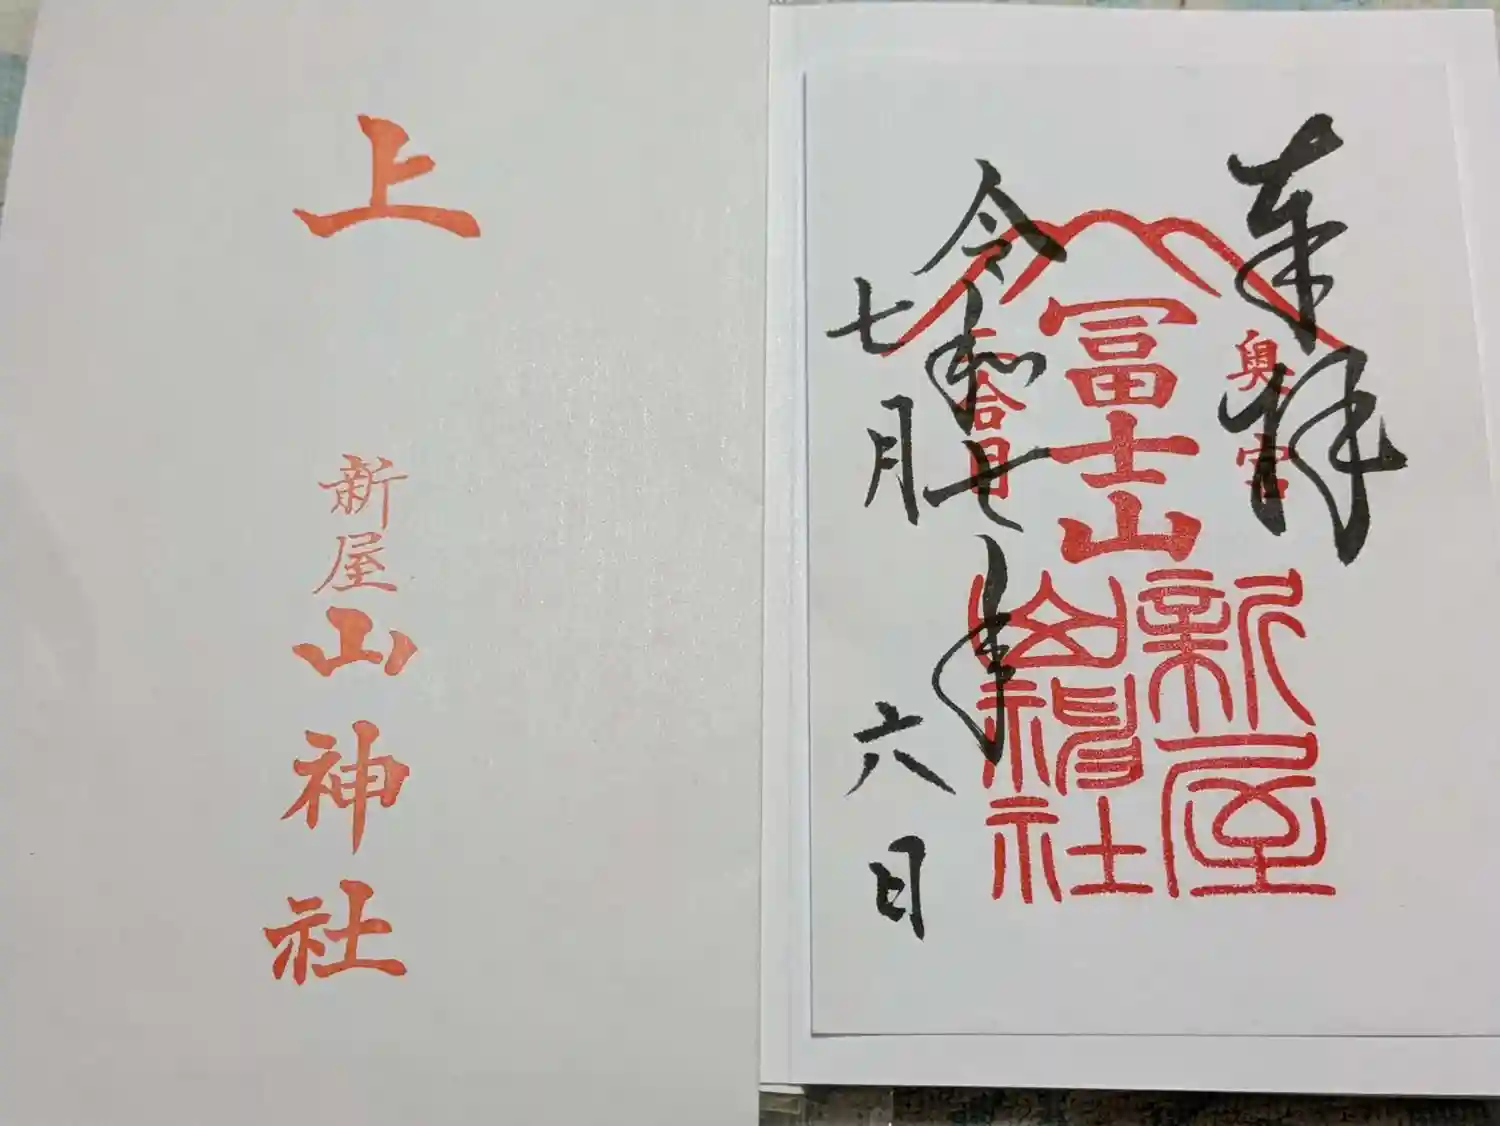 上
新屋
山神社
奉拝
奥宮
冨士山
二合目
新屋
山神社
令和七年
七月六日